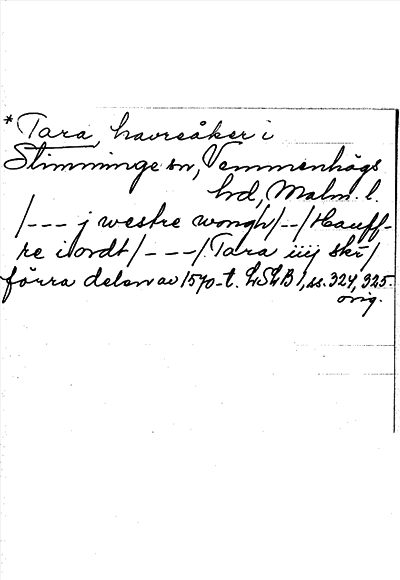 *Tara, havreåker i
Slimminge sn, Vemmenhögs
hd, Malm. l.
/--- j westre wongh/--/Hauff-
re iordt/---/Tara iiij skr/
förra delen av 1570-t. LSLB1, ss. 324, 325.
orig.